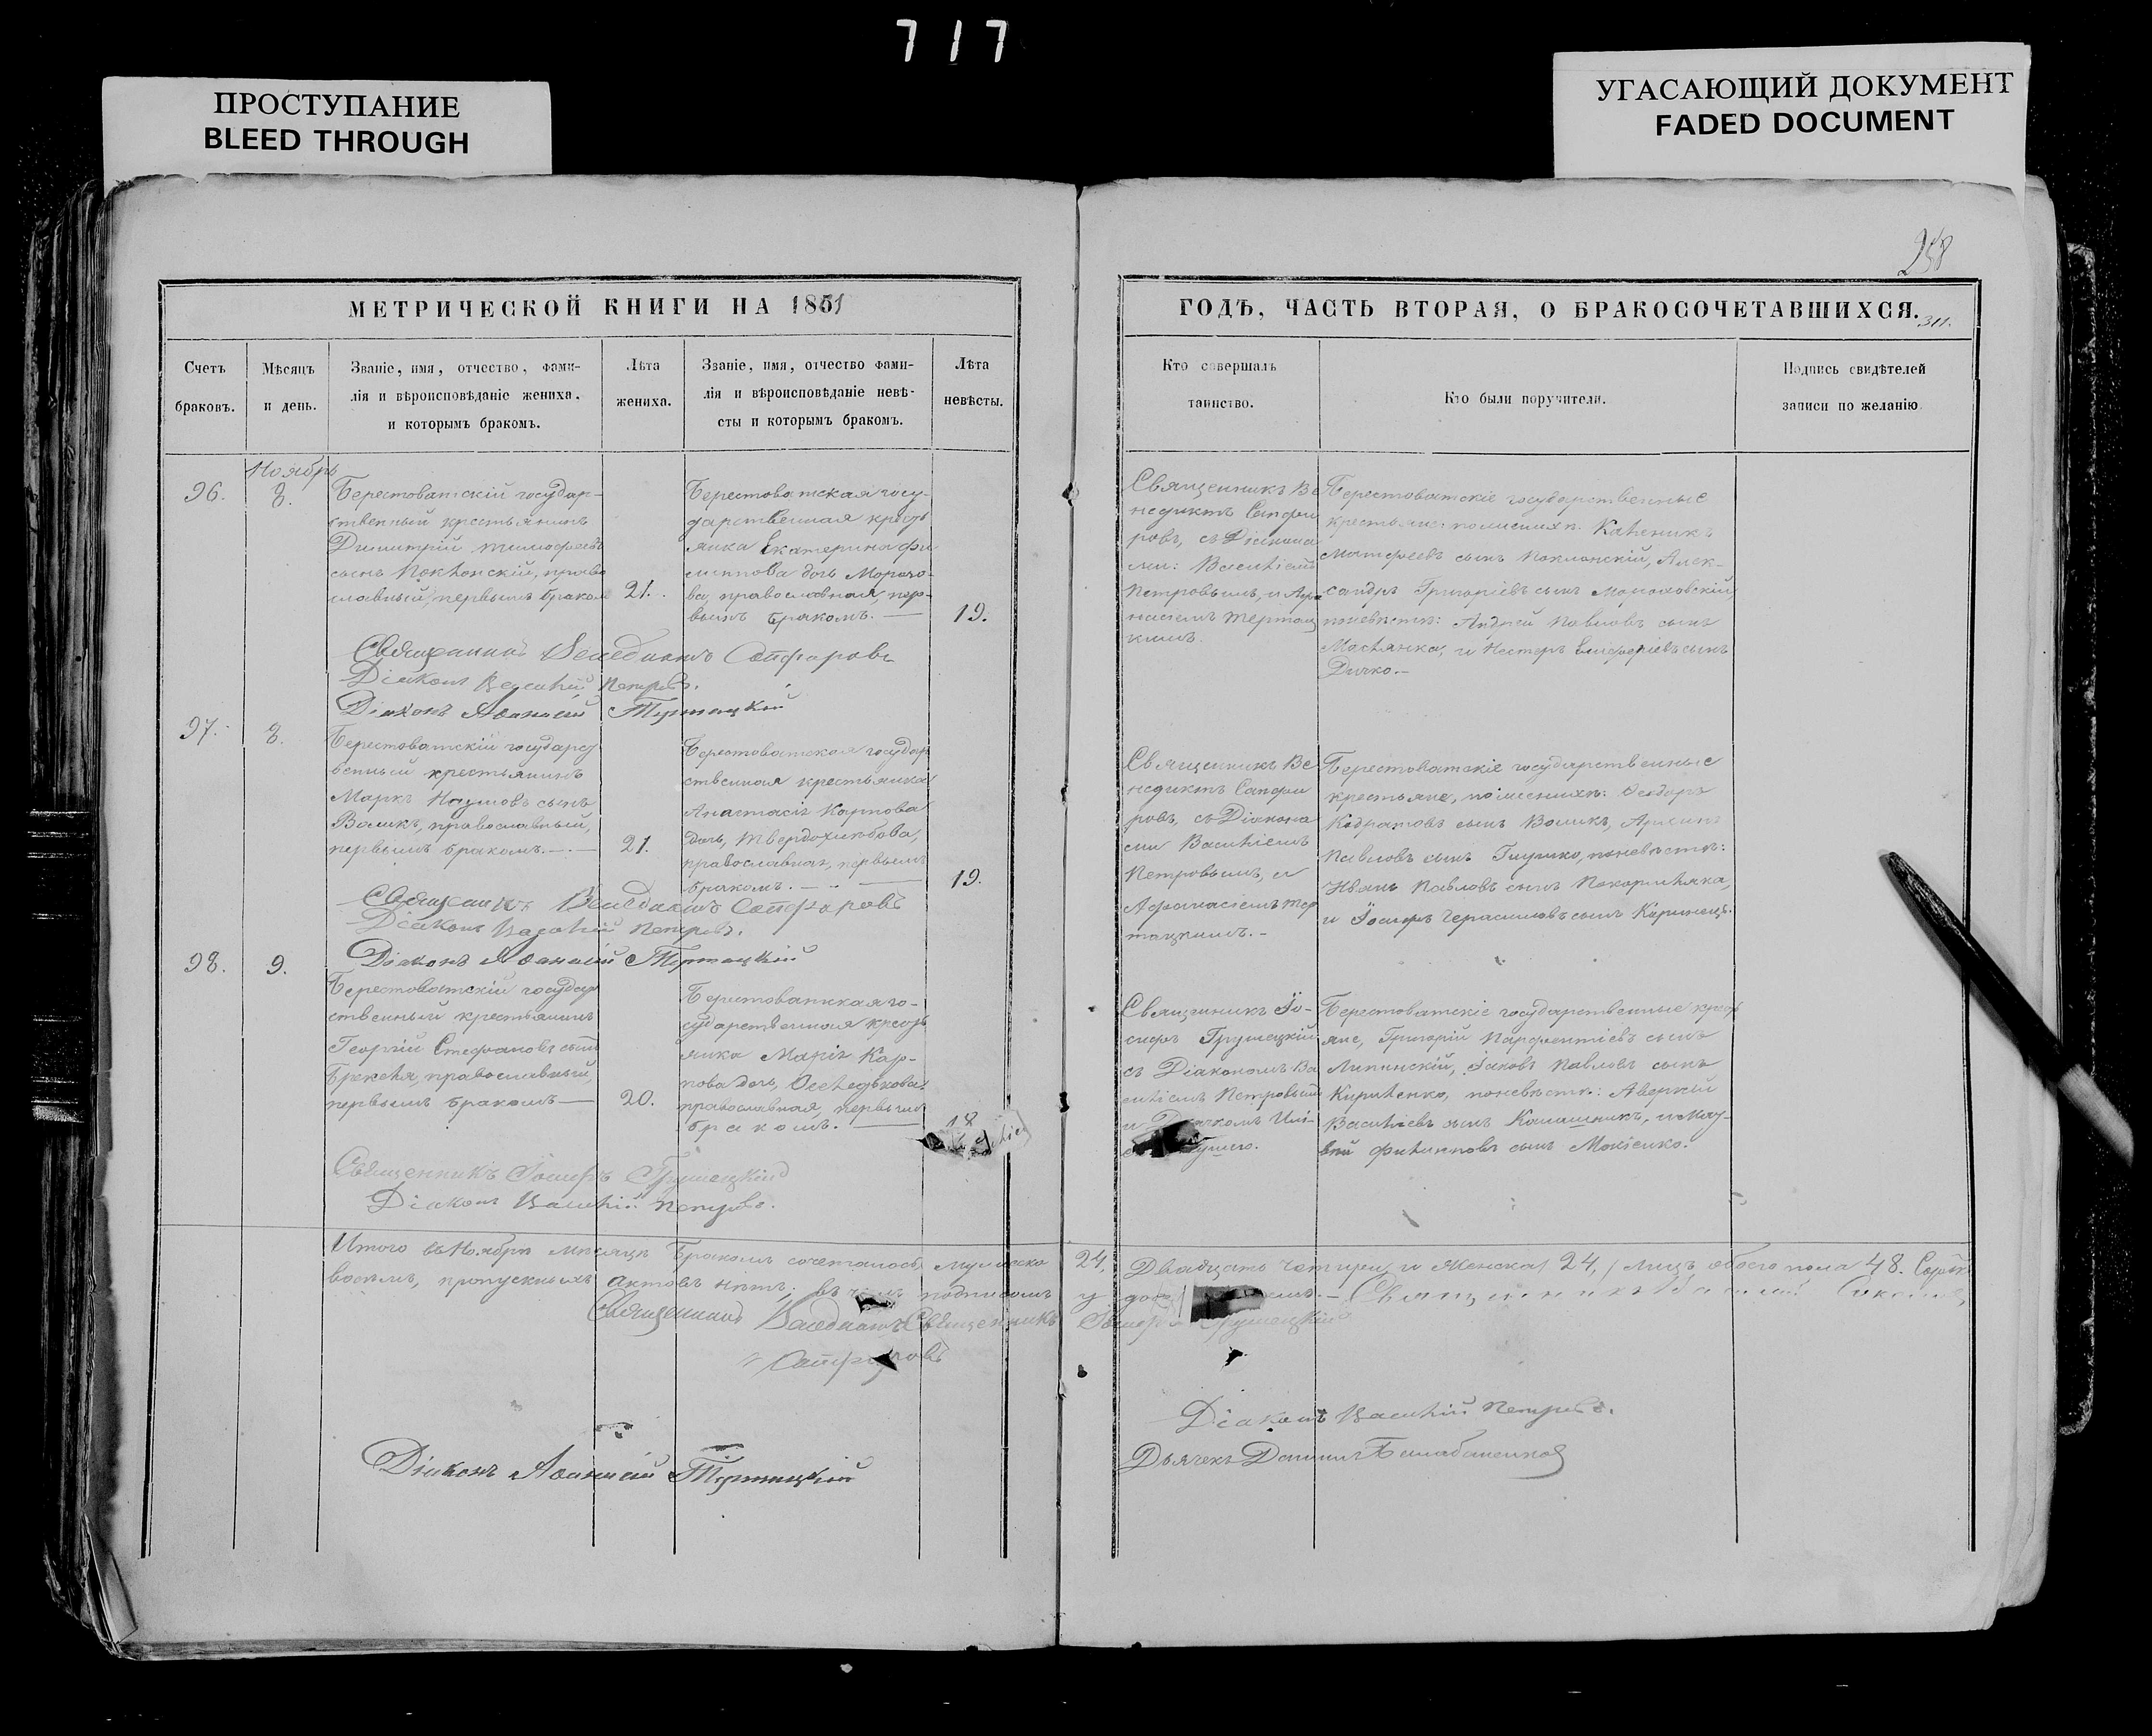 717
ПРОСТУПАНИЕ
BLEED THROUGH
УГАСАЮЩИЙ ДОКУМЕНТ
FADED DOCUMENT
258
МЕТРИЧЕСКОЙ КНИГИ НА 1861
ГОДЪ, ЧАСТЬ ВТОРАЯ, О БРАКОСОЧЕТАВШИХСЯ.
311.
Счетъ
браковъ.
Мѣсяцъ
и день.
Званіе, имя, отчество, фами-
лія и вѣроисповѣданіе жениха.
и которымъ бракомъ.
Лѣта
жениха.
Званіе, имя, отчество фами-
лія и вѣроисповѣданіе невѣ-
сты и которымъ бракомъ.
Лѣта
невѣсты.
Кто совершалъ
таинство.
Кто были поручители.
Подпись свидѣтелей
записи по желанію
Ноябрь
96.
8.
Берестоватскій государ-
ственный крестьянинъ
Димитрій Тимофеевъ
сынъ Поклонскій, право
славный, первымъ браком
21.
Берестоватская госу-
дарственная кресть
янка Екатерина Фи-
липпова дочь Морохо-
ва, православная, пер-
вымъ бракомъ.
19.
Священникъ Ве
недиктъ Сапфи
ровъ, съ Діакона
ми: Василіемъ
Петровымъ, и Афа
насіемъ Тертац
кимъ.
Берестоватскіе государственные
крестьяне: по женихѣ: Каленикъ
Матфеевъ сынъ Поклонскій, Алек-
сандръ Григоріевъ сынъ Мороховскій,
по невѣстѣ: Андрей Павловъ сынъ
Маслянка, и Нестеръ Елиферіевъ сынъ
Дичко.
Священникъ Венедиктъ Сапфировъ
Діаконъ Василій Петровъ.
Діаконъ Афанасій Тертацкій
97.
8.
Берестоватскій государст
венный крестьянинъ
Маркъ Наумовъ сынъ
Воликъ, православный,
первымъ бракомъ.
21.
Берестоватская государ
ственная крестьянка
Анастасія Карпова
дочь, Твердохлѣбова,
православная, первымъ
бракомъ.
19.
Священникъ Ве
недиктъ Сапфи
ровъ, съ Діакона
ми Василіемъ
Петровымъ, и
Афанасіемъ Тер
тацкимъ.
Берестоватскіе государственные
крестьяне, по женихѣ: Феодоръ
сынъ Воликъ,
Павловъ сынъ Глушко, по невѣстѣ:
Иванъ Павловъ сынъ
и Іосифъ Герасимовъ сынъ
Священникъ Венедиктъ Сапфировъ
Діаконъ Василій Петровъ.
Діаконъ Афанасій Тертацкій
98.
9.
Берестоватскій государ
ственный крестьянинъ
Георгій Стефановъ сынъ
православный,
первымъ бракомъ
20.
Берестоватская го-
сударственная кресть
янка Марія Кар-
пова дочь,
православная, первымъ
бракомъ.
18
Священникъ Іо-
сифъ Грушецкій
съ Діакономъ Ва
силіемъ Петровымъ
Берестоватскіе государственные крест
яне, Григорій Парфентіевъ сынъ
Липинскій, Іаковъ Павловъ сынъ
Кириленко, по невѣстѣ: Аверкій
Василіевъ сынъ Калашникъ, и Мат-
вѣй Филипповъ сынъ Мокіенко.
Священникъ Іосифъ Грушецкій
Діаконъ Василій Петровъ.
Итого въ Ноябрѣ мѣсяцѣ бракомъ сочеталось мужеска 24, Двадцать четыре и женска 24, лицъ обоего пола 48. Сорокъ
восемь, пропускныхъ актовъ нѣтъ; въ чемъ Священникъ
Священникъ Венедиктъ Священникъ Іосифъ Грушецкій
Сапфировъ
Діаконъ Василій Петровъ.
Діаконъ Афанасій Тертацкій
Дьячекъ Даниилъ